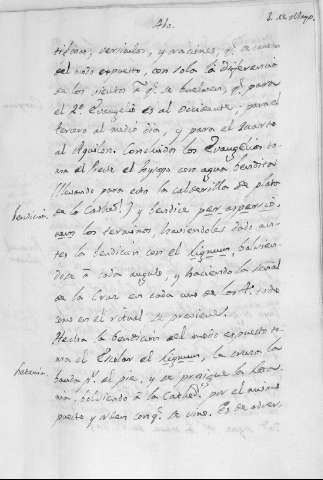 410.
3. de Mayo.
tifona, versiculos, y oraciones, q.e se
del modo expuesto, con sola la diferencia
de los vientos á q.e se buelven, q.e para
el 2.o Evangelio es al Occidente, para el
tercero al medio dia, y para el quarto
al Aquilon. Concluidos los Evangelios to-
ma el Preste el hysopo con agua bendita
(llevando para esto la calderilla de plata
de la Cathed.l) y bendice per aspersio-
nem los terminos, haviendoles dado an-
tes la bendicion con el lignum, bolvien-
dose á cada angulo, y haciendo la señal
de la Cruz en cada uno de los 4. todo
como en el ritual se previene.
Hecha la bendicion del modo expuesto to-
ma el Preste el lignum, la cruza la
banda p.r el pie, y se prosigue la Leta-
nia, bolviendo á la Cathed.l por el mismo
puesto y orden con q.e se vino. Es de adver-
bendicion.
Letania.